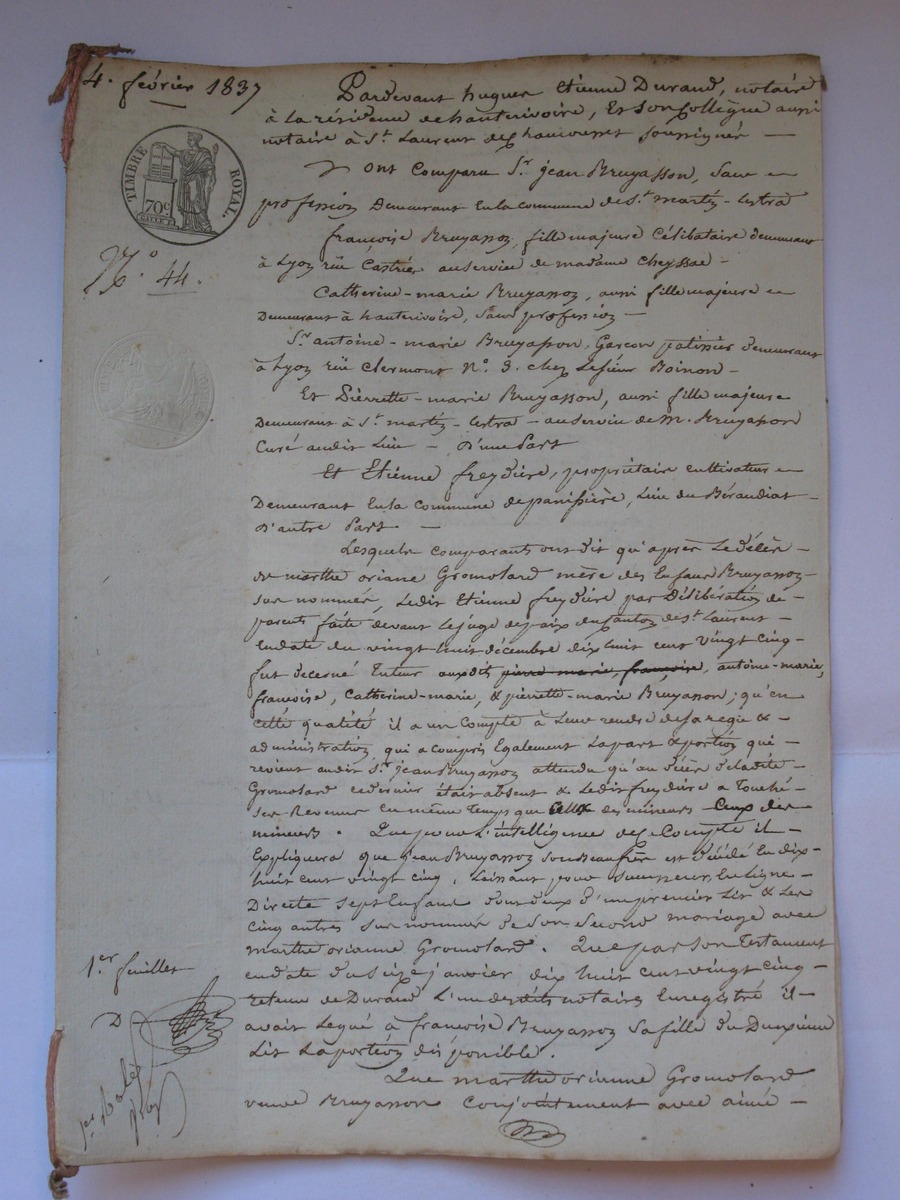 4. février 1837
Pardevant hugues Etienne Durand, notaire
à la résidence de hauterivoire, Et son Collègue aussi
notaire à St. Laurent de chamousset soussignés —
ont Comparu Sr. jean Bruyasson, sans
profession Demeurant En la commune de St. martin-lestra
françoise Bruyasson, fille majeure Célibataire demeurant
à Lyon rüe Castries au service de madame Cheyssac —
Catherine-marie Bruyasson, aussi fille majeure
Demeurant à hauterivoire, sans profession —
Sr. antoine-marie Bruyasson, Garçon patissier demeurant
à Lyon rüe Clermont No. 3. chez Le sieur Boinon —
Et Pierrette-marie Bruyasson, aussi fille majeure
Demeurant à St. martin-lestra — au service de M. Bruyasson
Curé audit Lieu — D'une Part
Et Etienne freydière, propriétaire cultivateur
Demeurant En la commune de panissière, Lieu du Béraudiat —
D'autre Part —
Lesquels comparants ont dit qu'après Le décès —
de marthe oriane Gromolard mère des Enfans Bruyasson —
sus nommés, Ledit Etienne freydière par Délibération de —
parents faite devant Le juge de paix du canton de St. Laurent —
En date du vingt huit décembre dix huit cent vingt cinq —
fut décerné tuteur auxdits pierre marie, françoise, antoine-marie,
françoise, Catherine-marie, & pierrette-marie Bruyasson; qu'en
cette qualité il a un Compte à Leur rendre de sa régie & —
administration qui a compris Egalement La part & portion qui —
revient audit Sr. jean Bruyasson attendu qu'au décès de ladite —
Gromolard ce dernier était absent & Ledit freydière a Touché —
ses Revenus En même temps que des mineurs Ceux des
mineurs. Que pour L'intelligence de Compte il —
Expliquera que jean Bruyasson son Beaufrère est décédé En dix —
huit cent vingt cinq, Laissant pour successeurs En Ligne —
Directe sept Enfans dont deux d'un premier Lit & Les
Cinq autres sus nommés de Son Second mariage avec
marthe orianne Gromolard. Que par son Testament
En date du seize janvier dix huit cent vingt cinq —
retenu de Durand L'un desdits notaires Enregistré il —
avait Légué à francoise Bruyasson sa fille du Deuxième
Lit La portion disponible.
Que marthe orianne Gromolard
veuve Bruyasson Conjointement avec aimé —
TIMBRE ROYAL.
70c
No. 44.
1.er feuillet
D